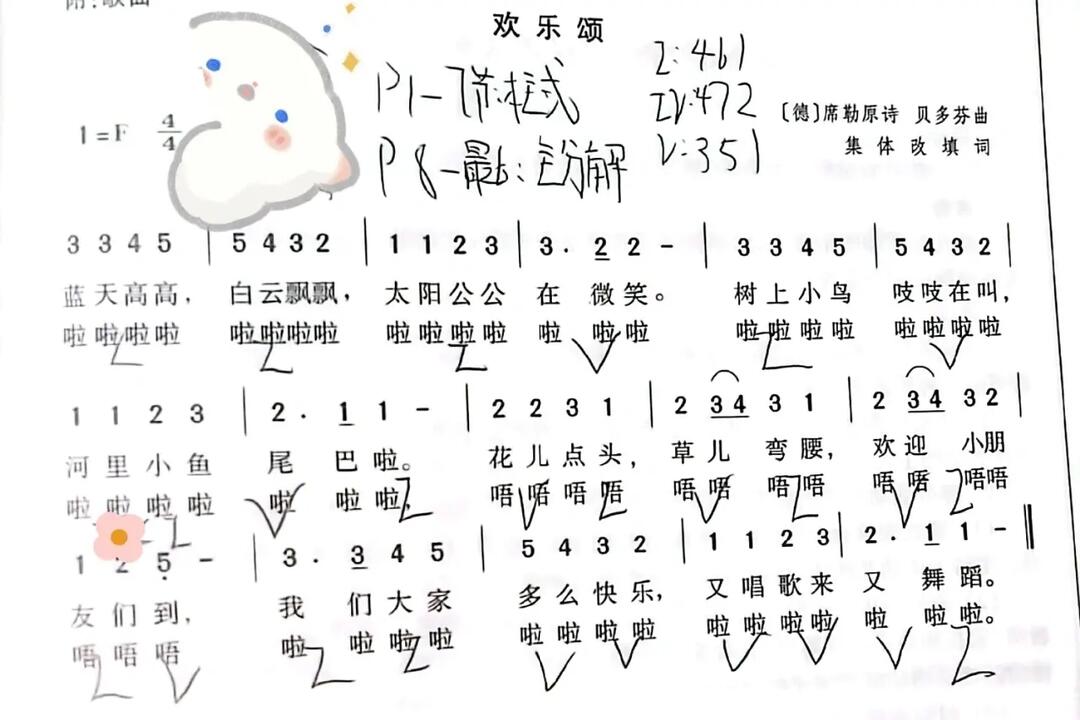 附:歌曲
欢乐颂
P1-7 柱式
I:461
IV:472
V:351
P8-最后:全分解
1=F 4/4
〔德〕席勒原诗 贝多芬曲
集体改填词
3 3 4 5 | 5 4 3 2 | 1 1 2 3 | 3 . 2 2 - | 3 3 4 5 | 5 4 3 2 |
蓝天高高, 白云飘飘, 太阳公公 在 微笑。 树上小鸟 吱吱在叫,
啦啦啦啦 啦啦啦啦 啦啦啦啦 啦 啦啦 啦啦啦啦 啦啦啦啦
I I I V I V
1 1 2 3 | 2 . 1 1 - | 2 2 3 1 | 2 34 3 1 | 2 34 3 2 |
河里小鱼 尾 巴啦。 花儿点头, 草儿 弯腰, 欢迎 小朋
啦啦啦啦 啦 啦啦, 唔唔唔唔 唔唔 唔唔 唔唔 唔唔
I V I V I V I V I
1 2 5 - | 3 . 3 4 5 | 5 4 3 2 | 1 1 2 3 | 2 . 1 1 - ‖
友们到, 我 们大家 多么快乐, 又唱歌来 又 舞蹈。
唔唔唔 啦 啦啦啦 啦啦啦啦 啦啦啦啦 啦 啦啦。
I V I I V V V V V I